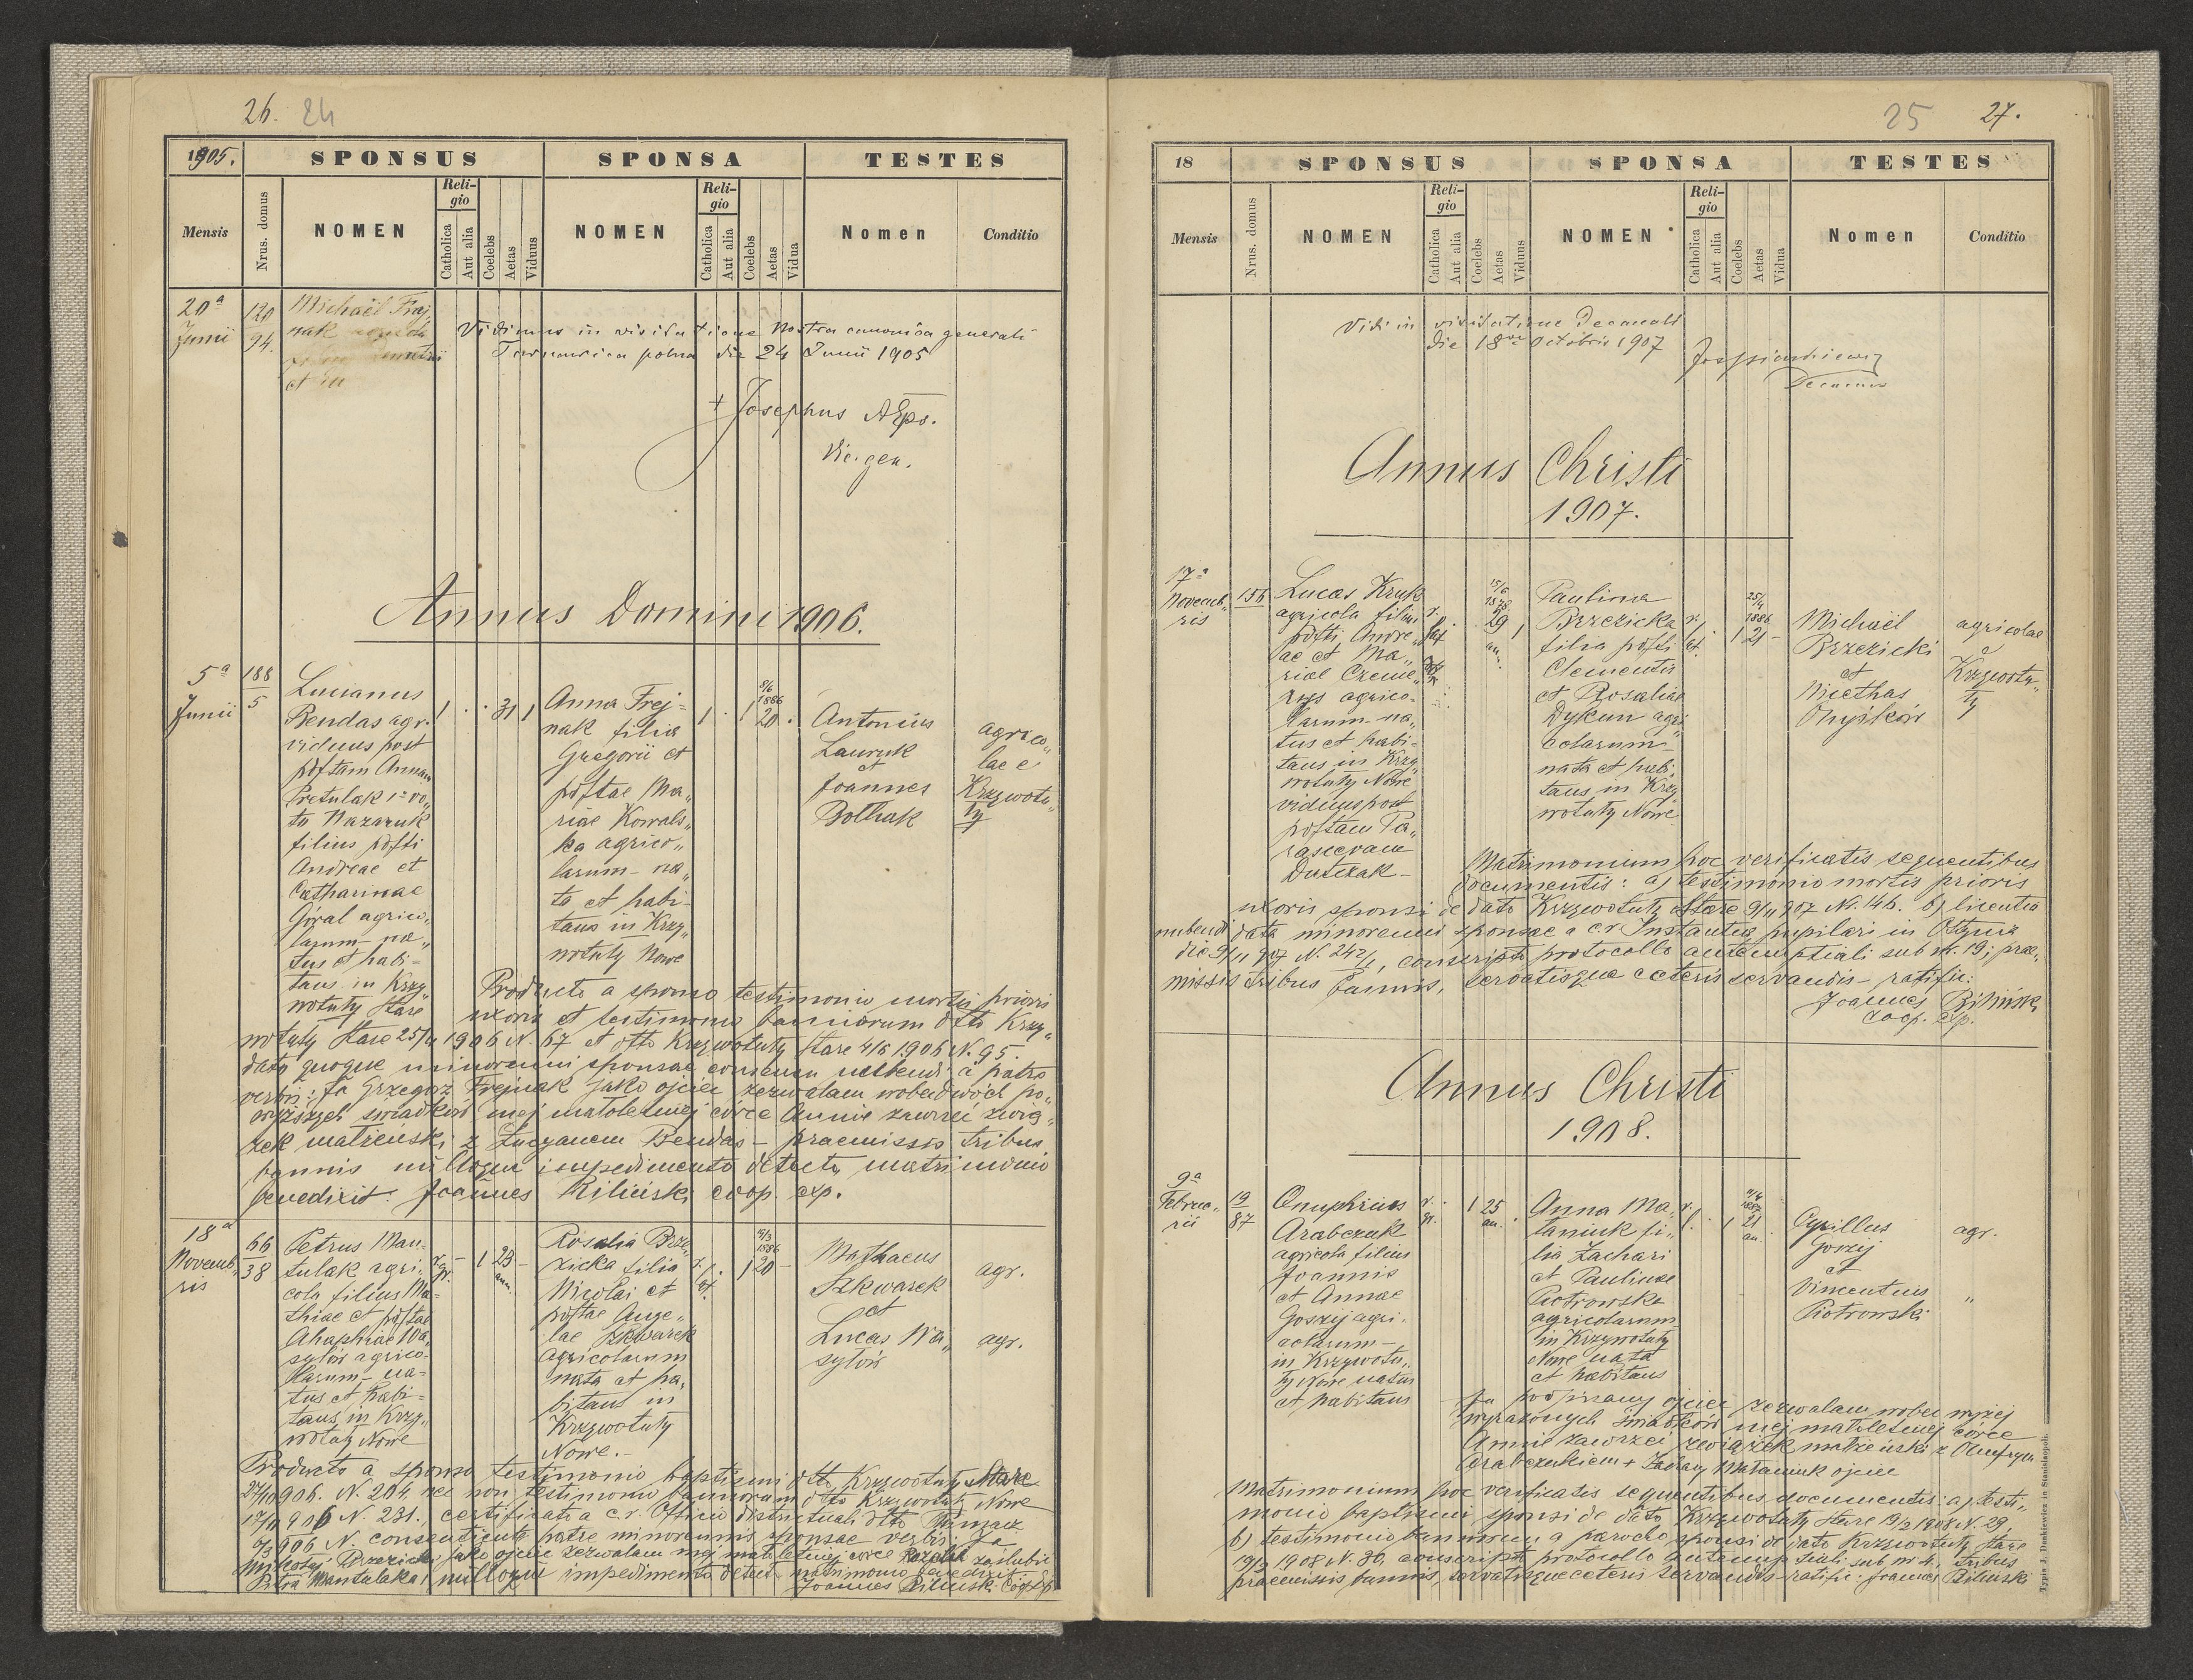 26. 24
1905.
SPONSUS
SPONSA
TESTES
Mensis
Nrus. domus
NOMEN
Religio
Catholica
Aut alia
Coelebs
Aetas
Viduus
NOMEN
Religio
Catholica
Aut alia
Coelebs
Aetas
Vidua
Nomen
Conditio
20ª
Junii
120
94.
Michaël Frej„
nak agricola
et in
Vidimus in visitatione Nostra canonica generali
die 24 Junii 1905
+ Josephus AEps.
Vic. gen.
Annus Domini 1906.
5ª
Junii
188
5
Lucianus
Bendas agr.
viduus post
pdftam Annam
Pretulak 1º vo„
to Nazaruk
filius pdfti
Andreae et
Catharinae
Góral agrico„
larum – na„
tus et habi-
tans in Krzy„
wotuły Stare
1 . . 31 1
Anna Frej=
nak filia
Gregorii et
pdftae Ma„
riae Kowals„
ka agrico„
larum – na„
ta et habi-
tans in Krzy„
wotuły Nowe
1 . 1
5/6
1886
20 .
Antonius
Lawruk
et
Joannes
Bolhak
agrico„
lae e
Krzywotu„
ły
Producto a sponso testimonio mortis prioris
uxoris et testimonio bannorum dtto Krzy„
wotuły Stare 1906 N. 67 et dtto Krzywotuły Stare 4/6 1906 N. 95.
dato quoque minorenni sponsae consensu nubendi a patre
verbis: Ja Grzegorz Frejnak jako ojciec zezwalam wobec dwóch po„
wyższych świadków mej małoletniej córce Annie zawrzeć zwią„
zek małżeński z Łucyanem Bendas – praemissis tribus
bannis nulloque impedimento detecto matrimonio
benedixit: Joannes Biliński coop. exp.
18ª
Novemb„
ris
66
38
Petrus Man-
tulak agri„
cola filius Ma-
thiae et pdftae
Ahaphiae Wa„
sylów agrico-
larum – na-
tus et habi=
tans in Krzy„
wotuły Nowe
r. gr. – 1 23
ann.
Rosalia Brze„
zicka filia
Nicolai et
pdftae Ange„
lae Szkwarek
agricolarum
nata et ha„
bitans in
Krzywotuły
Nowe. –
1886
1 20 –
Mathaeus
Szkwarek
et
Lucas Wa„
sylów
agr.
agr.
Producto a sponso testimonio baptismi dtto Krzywotuły Stare
27/10 906. N. 204 nec non testimonio bannorum dtto Krzywotuły Nowe
17/11 906 N. 231., certificato a c.r. Officio districtuali dtto
906 N. consentiente patre minorennis sponsae verbis: Ja
Mikołaj Brzezicki jako ojciec zezwalam mej małoletniej córce Rozalii zaślubić
Piotra Mantulaka, nulloque impedimento detecto matrimonio benedixit:
Joannes Biliński Coop. Exp.
25 27.
18
SPONSUS
SPONSA
TESTES
Mensis
Nrus. domus
NOMEN
Religio
Catholica
Aut alia
Coelebs
Aetas
Viduus
NOMEN
Religio
Catholica
Aut alia
Coelebs
Aetas
Vidua
Nomen
Conditio
Vidi in visitatione Decanali
die 18va Octobris 1907
Decanus
Annus Christi
1907.
17ª
Novemb„
ris
156
Lucas Kruk
agricola filius
pdfti Andre„
ae et Ma„
riae Czeme„
rys agrico-
larum – na„
tus et habi-
tans in Krzy„
wotuły Nowe
viduus post
pdftam Pa„
rascevam
Dutczak –
15/6
1878
29 1
an.
Paulina
Brzezicka
filia pdfti
Clementis
et Rosaliae
Dykun agri„
colarum –
nata et habi„
tans in Krzy„
wotuły Nowe
25/4
1886
1 21 –
Michaël
Brzezicki
et
Nicethas
Onyśków
agricolae
e
Krzywotu„
ły
Matrimonium hoc verificatis sequentibus
documentis: a) testimonio mortis prioris
uxoris sponsi de dato Krzywotuły Stare 9/11 907 N. 146. b) licentia
nubendi data minorenni sponsae a c.r. Instantia pupilari in Ottynia
die 9/11 907 N. 242/1, conscripto protocollo antenuptiali sub nr. 19; prae„
missis tribus bannis, servatisque ceteris servandis – ratific:
Joannes Biliński
coop. exp.
Annus Christi
1908.
9ª
Februa„
rii
19
87
Onuphrius
Arabczuk
agricola filius
Joannis
et Annae
Goszij agri-
colarum –
in Krzywotu„
ły Nowe natus
et habitans
r.
gr. . 1 25
an. .
Anna Ma„
taniuk fi„
lia Zachari
et Paulinae
Piotrowska
agricolarum
in Krzywotuły
Nowe nata
et habitans
1 21
an.
Cyrillus
Gorzij
et
Vincentius
Piotrowski
agr.
„
Ja podpisany ojciec zezwalam wobec wyżej
wyrażonych świadków mej małoletniej córce
Annie zawrzeć związek małżeński z Onufrym
Arabczukiem + Zachary Mataniuk ojciec
Matrimonium hoc verificatis sequentibus documentis: a) testi„
monio baptismi sponsi de dato Krzywotuły Stare 19/2 1908 N. 29,
b) testimonio bannorum a parocho sponsi de dato Krzywotuły Stare
19/2 1908 N. 30, conscripto protocollo antenuptiali sub nr 4., tribus
praemissis bannis, servatisque ceteris servandis ratific: Joannes Biliński
Typis J. Dankiewicz in Stanislaopoli